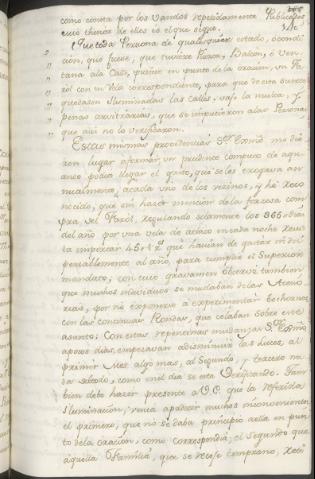 como consta por los Vandos repetidamente Publicados
cuio thenor de ellos es el que sigue.
Que toda Persona de qualesquiera estado, ò condi
cion, que fuese, que tuviere Puerta, Balcon, ò Ven
tana ála Calle, pusiese en punto de la oracion, un Fa
rol con su Vela correspondiente, para que de esta suerte
quedasen Iluminadas las calles, vajo la multa, y
penas arvitrarias, que se impusieron alas Personas
que asi no lo verificaran.
Estas mismas providencias S.or Exmô me die
ron lugar aformar un prudente computo de aqu
anco podia llegar el gasto, que se les exegava an
nualmente, acada uno de los vecinos, y hé reco
nocido, que sin hacer mencion dela forzosa com
pra del Farol, regulando solamente los 365 dias
del año por una vela de acinco encada noche resul
ta importar 45 r.s que havian de gastar
al año, para cumplir el Superior
mandato, con cuio gravamen observé tambien
que muchos individuos se mudaban delas Aceso
rias, por no exponerse á experimentar bochornos
con las continuas Rondas, que celaban sobre este
asunto. Con estas repentinas mudanzas S.or Exmô
apocos dias, empesavan a disminuir las luces, al
primer Mes algo mas, al Segundo, y tercero na
da
bien debo hacer presente a V.E. que la referida
Iluminacion, venia apadecer muchos inconvenientes
el primero, que no se daba principio aella en pun
to dela Oracion, como correspondia; el Segundo que
aquella Familia, que se recoje temprano,